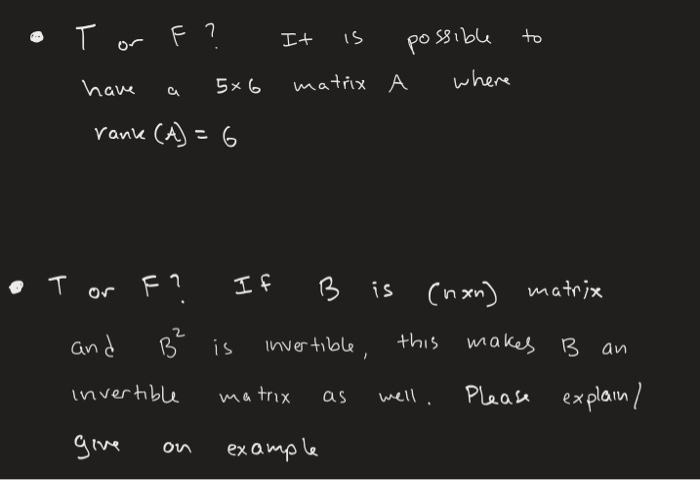 • T or F? It is possible to
have a 5×6 matrix A where
rank (A) = 6
• T or F? If B is (n×n) matrix
and B² is invertible, this makes B an
invertible matrix as well. Please explain/
give on example